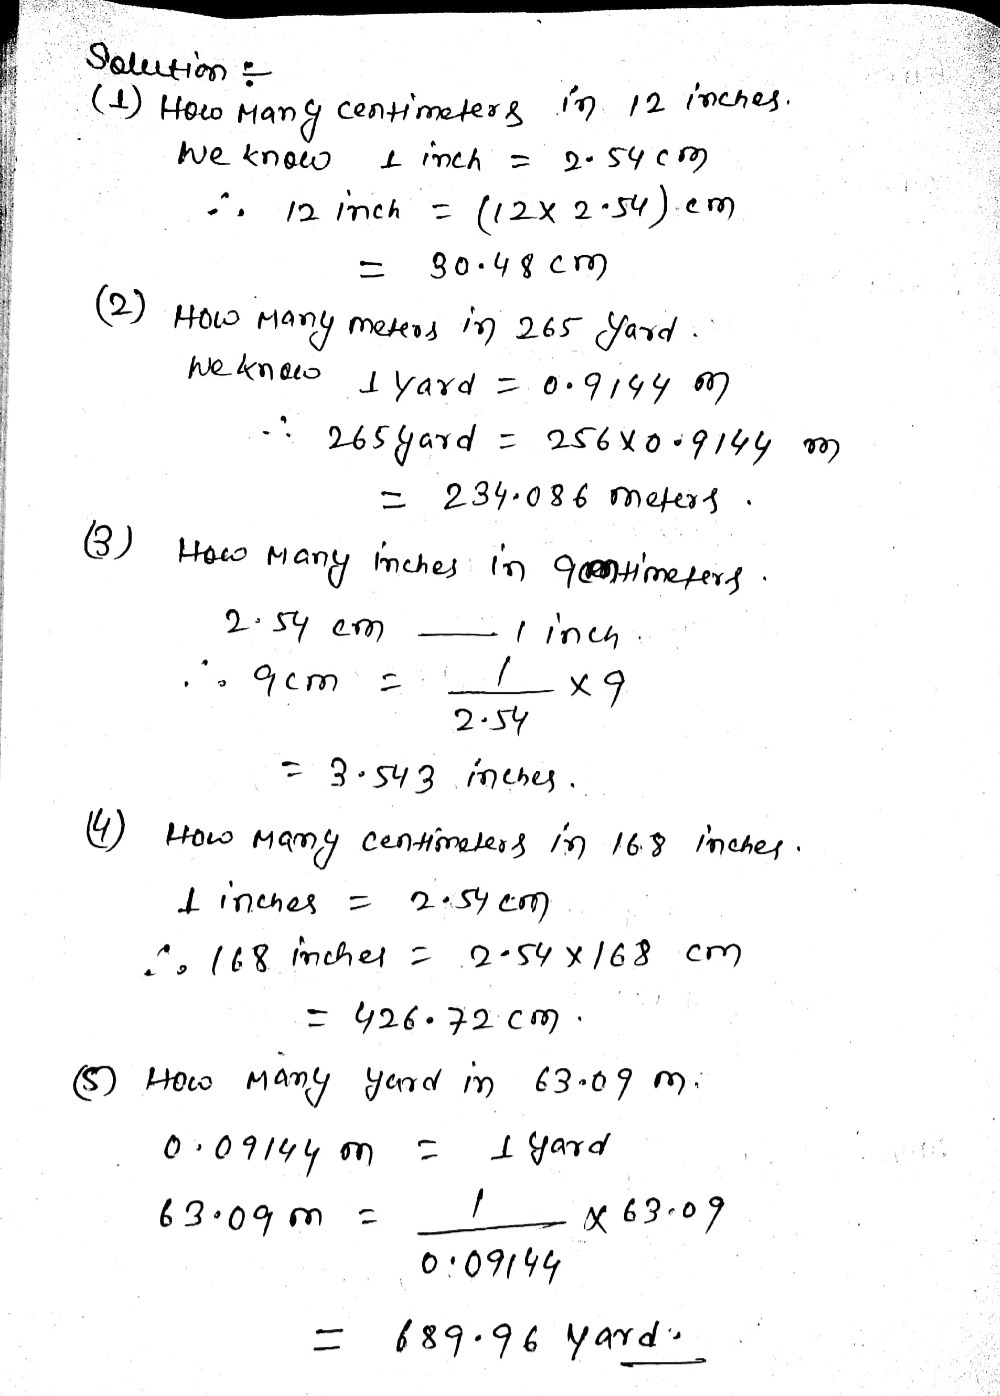 Solution :-
(1) How Many centimeters in 12 inches.
We know 1 inch = 2.54 cm
∴ 12 inch = (12 x 2.54) cm
= 30.48 cm
(2) How Many meters in 265 Yard.
We know 1 Yard = 0.9144 m
∴ 265 Yard = 256 x 0.9144 m
= 234.086 meters.
(3) How Many inches in 9 centimeters.
2.54 cm — 1 inch.
∴ 9 cm = 1 / 2.54 x 9
= 3.543 inches.
(4) How Many centimeters in 168 inches.
1 inches = 2.54 cm
∴ 168 inches = 2.54 x 168 cm
= 426.72 cm.
(5) How Many yard in 63.09 m.
0.09144 m = 1 Yard
63.09 m = 1 / 0.09144 x 63.09
= 689.96 Yard.